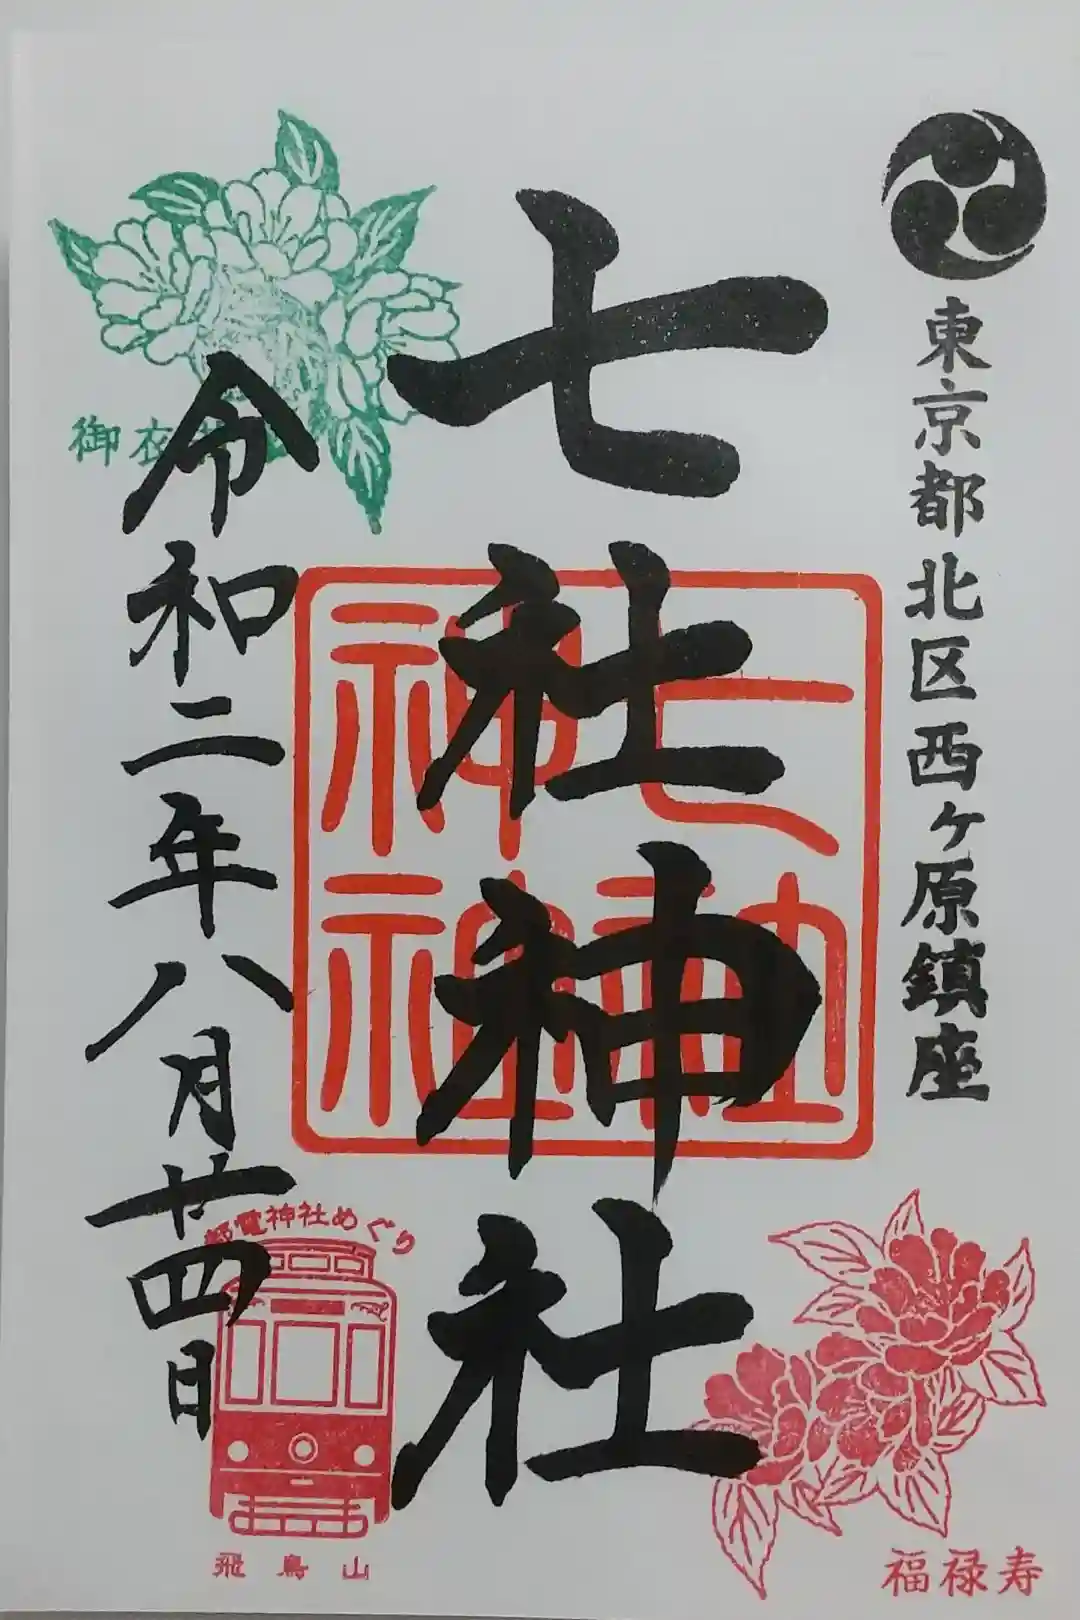 東京都北区西ヶ原鎮座
七社神社
七社神社
令和二年八月廿四日
御衣
電神社めぐり
飛鳥山
福禄寿